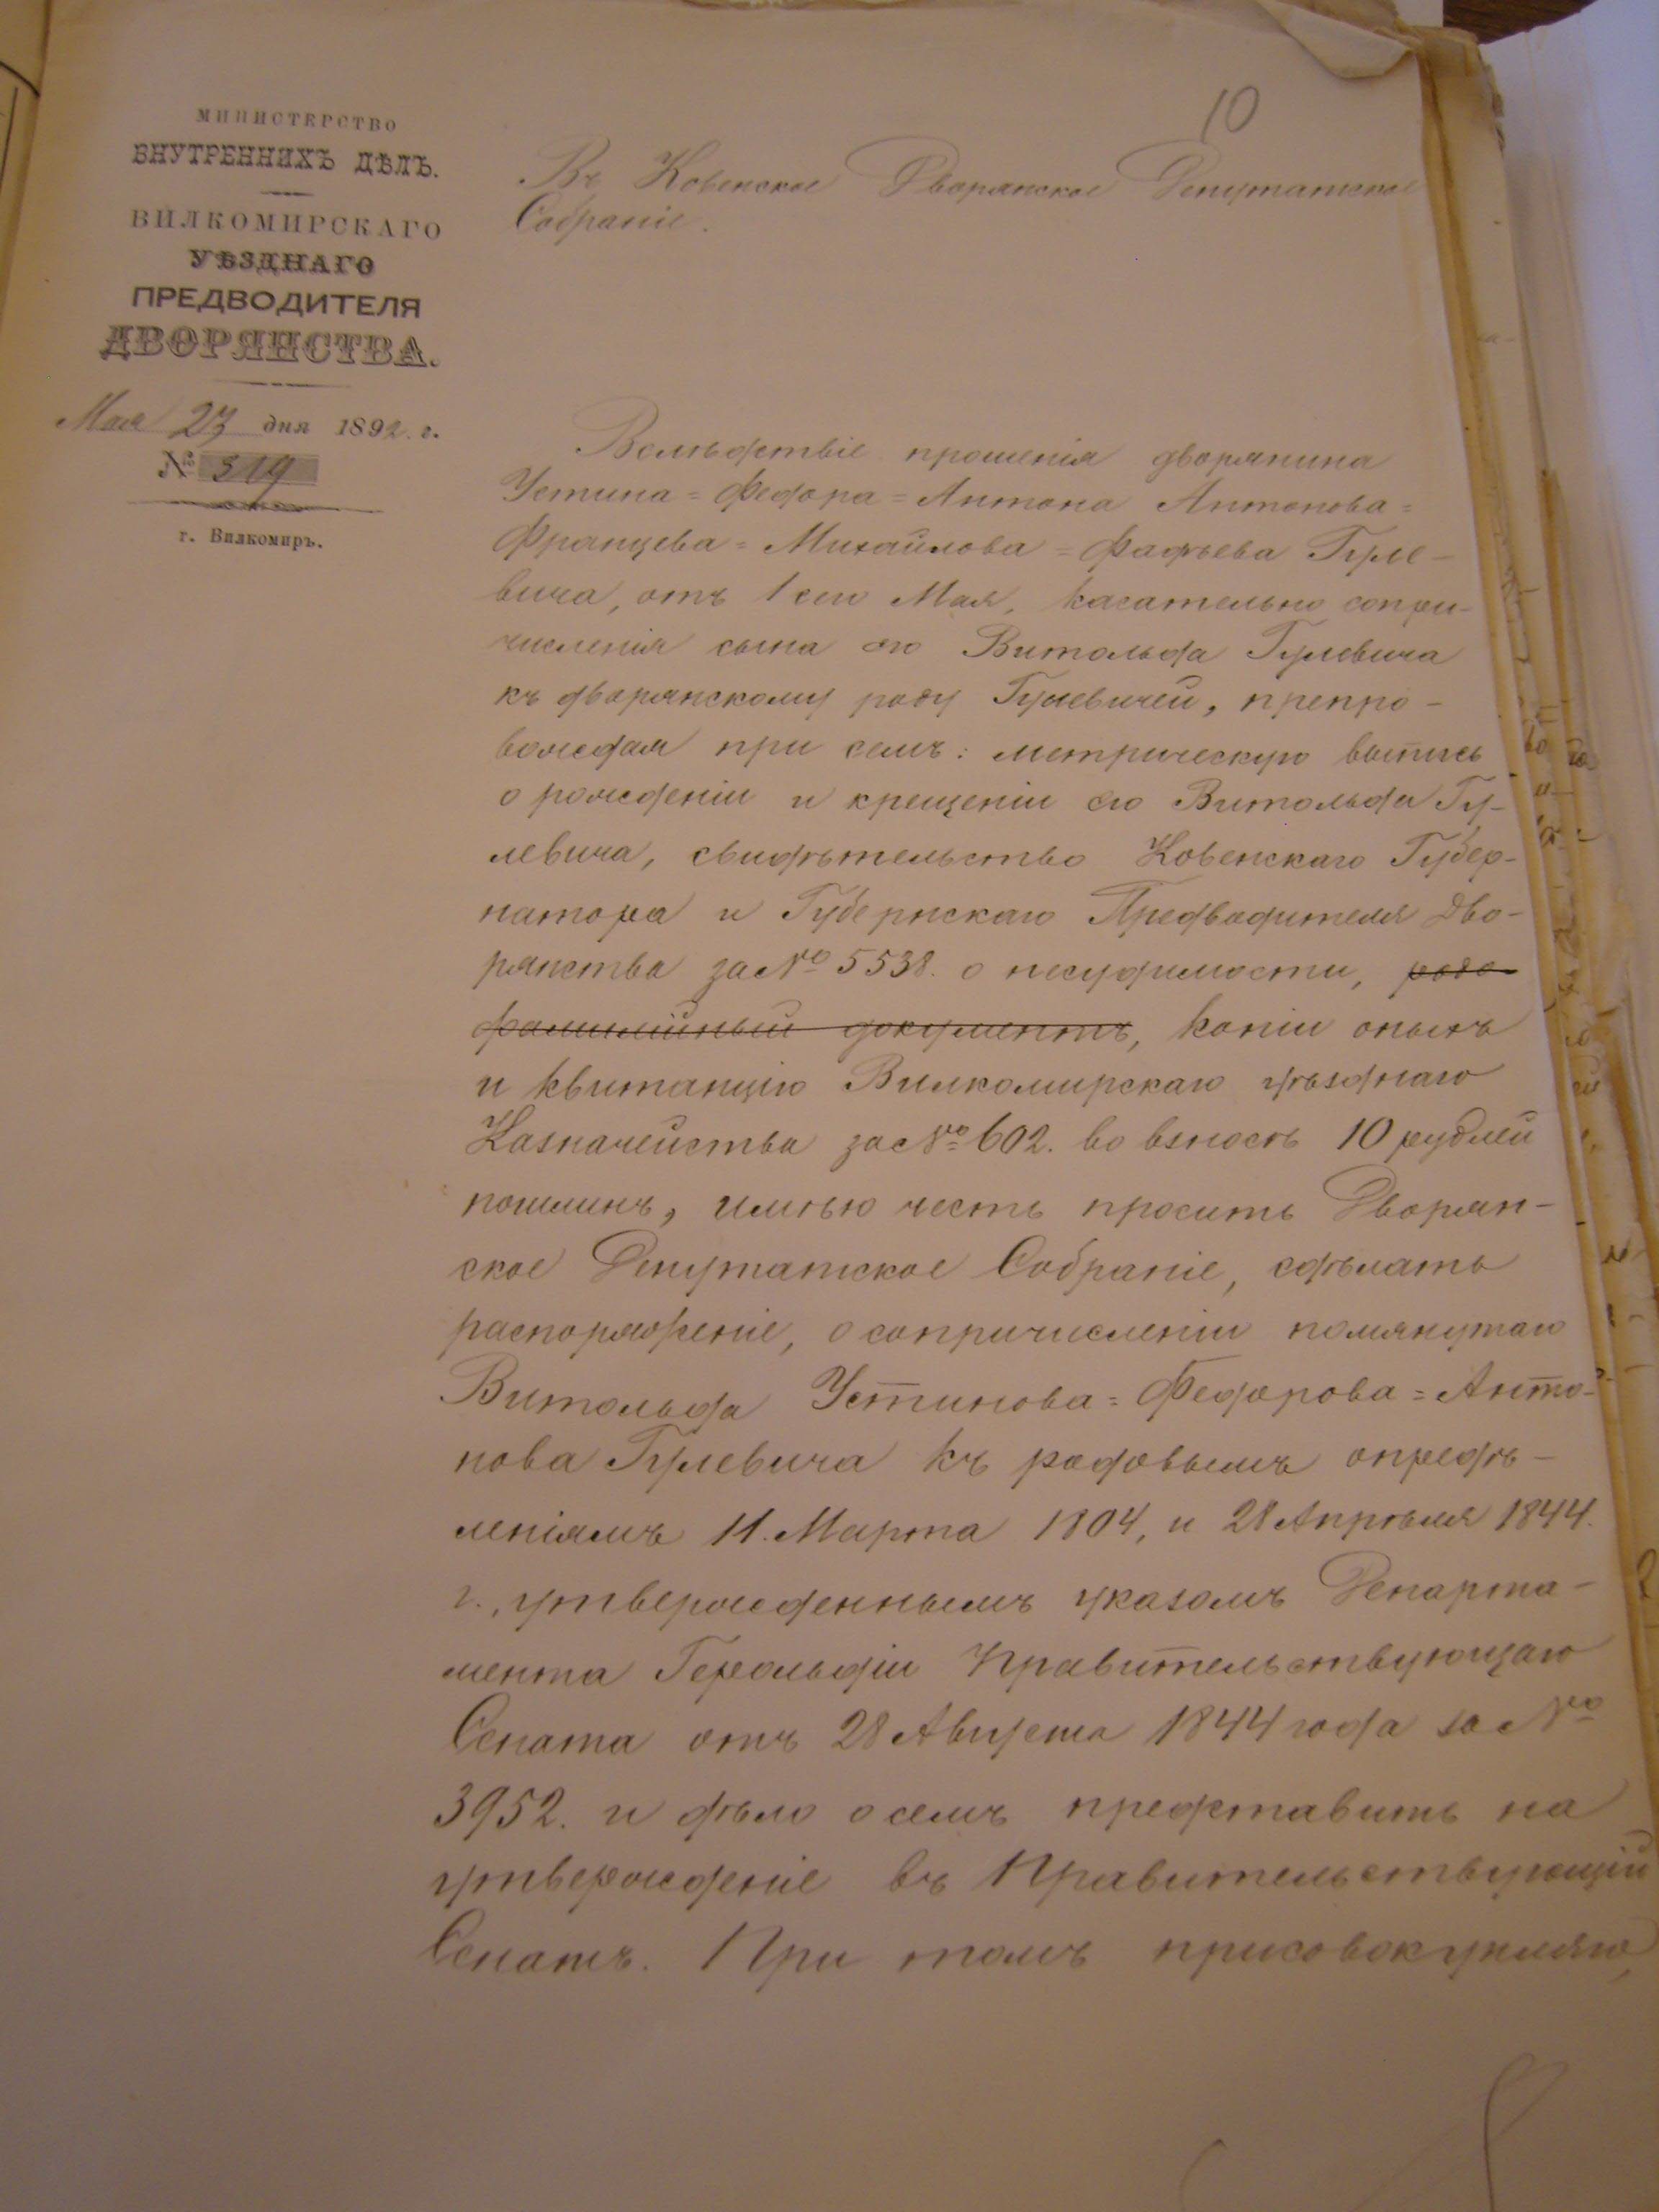 10
МИНИСТЕРСТВО
ВНУТРЕННИХЪ ДѢЛЪ.
ВИЛКОМИРСКАГО
УѢЗДНАГО
ПРЕДВОДИТЕЛЯ
ДВОРЯНСТВА.
Мая 23 дня 1892. г.
№ 319
г. Вилкомиръ.
Въ Ковенское Дворянское Депутатское
Собраніе.
Вслѣдствіе прошенія дворянина
Устина=Федора=Антона Антонова=
Францева=Михайлова=Фадѣева Гуле-
вича, отъ 1 сего Мая, касательно сопри-
численія сына его Витольда Гулевича
къ дворянскому роду Гулевичей, препро-
вождая при семъ: метрическую выпись
о рожденіи и крещеніи его Витольда Гу-
левича, свидѣтельство Ковенскаго Губер-
натора и Губернскаго Предводителя Дво-
рянства за № 5538. о несудимости, родо-
фамилійный документъ, копіи оныхъ
и квитанцію Вилкомирскаго уѣзднаго
Казначейства за № 602. во взносѣ 10 рублей
пошлинъ, имѣю честь просить Дворян-
ское Депутатское Собраніе, сдѣлать
распоряженіе, о сопричисленіи помянутаго
Витольда Устинова=Федорова=Анто-
нова Гулевича къ родовымъ опредѣ-
леніямъ 11. Марта 1804, и 28 Апрѣля 1844.
г., утвержденнымъ указомъ Департа-
мента Герольдіи Правительствующаго
Сената отъ 28 Августа 1844 года за №
3952. и дѣло о семъ представить на
утвержденіе въ Правительствующій
Сенатъ. При томъ присовокупляю,